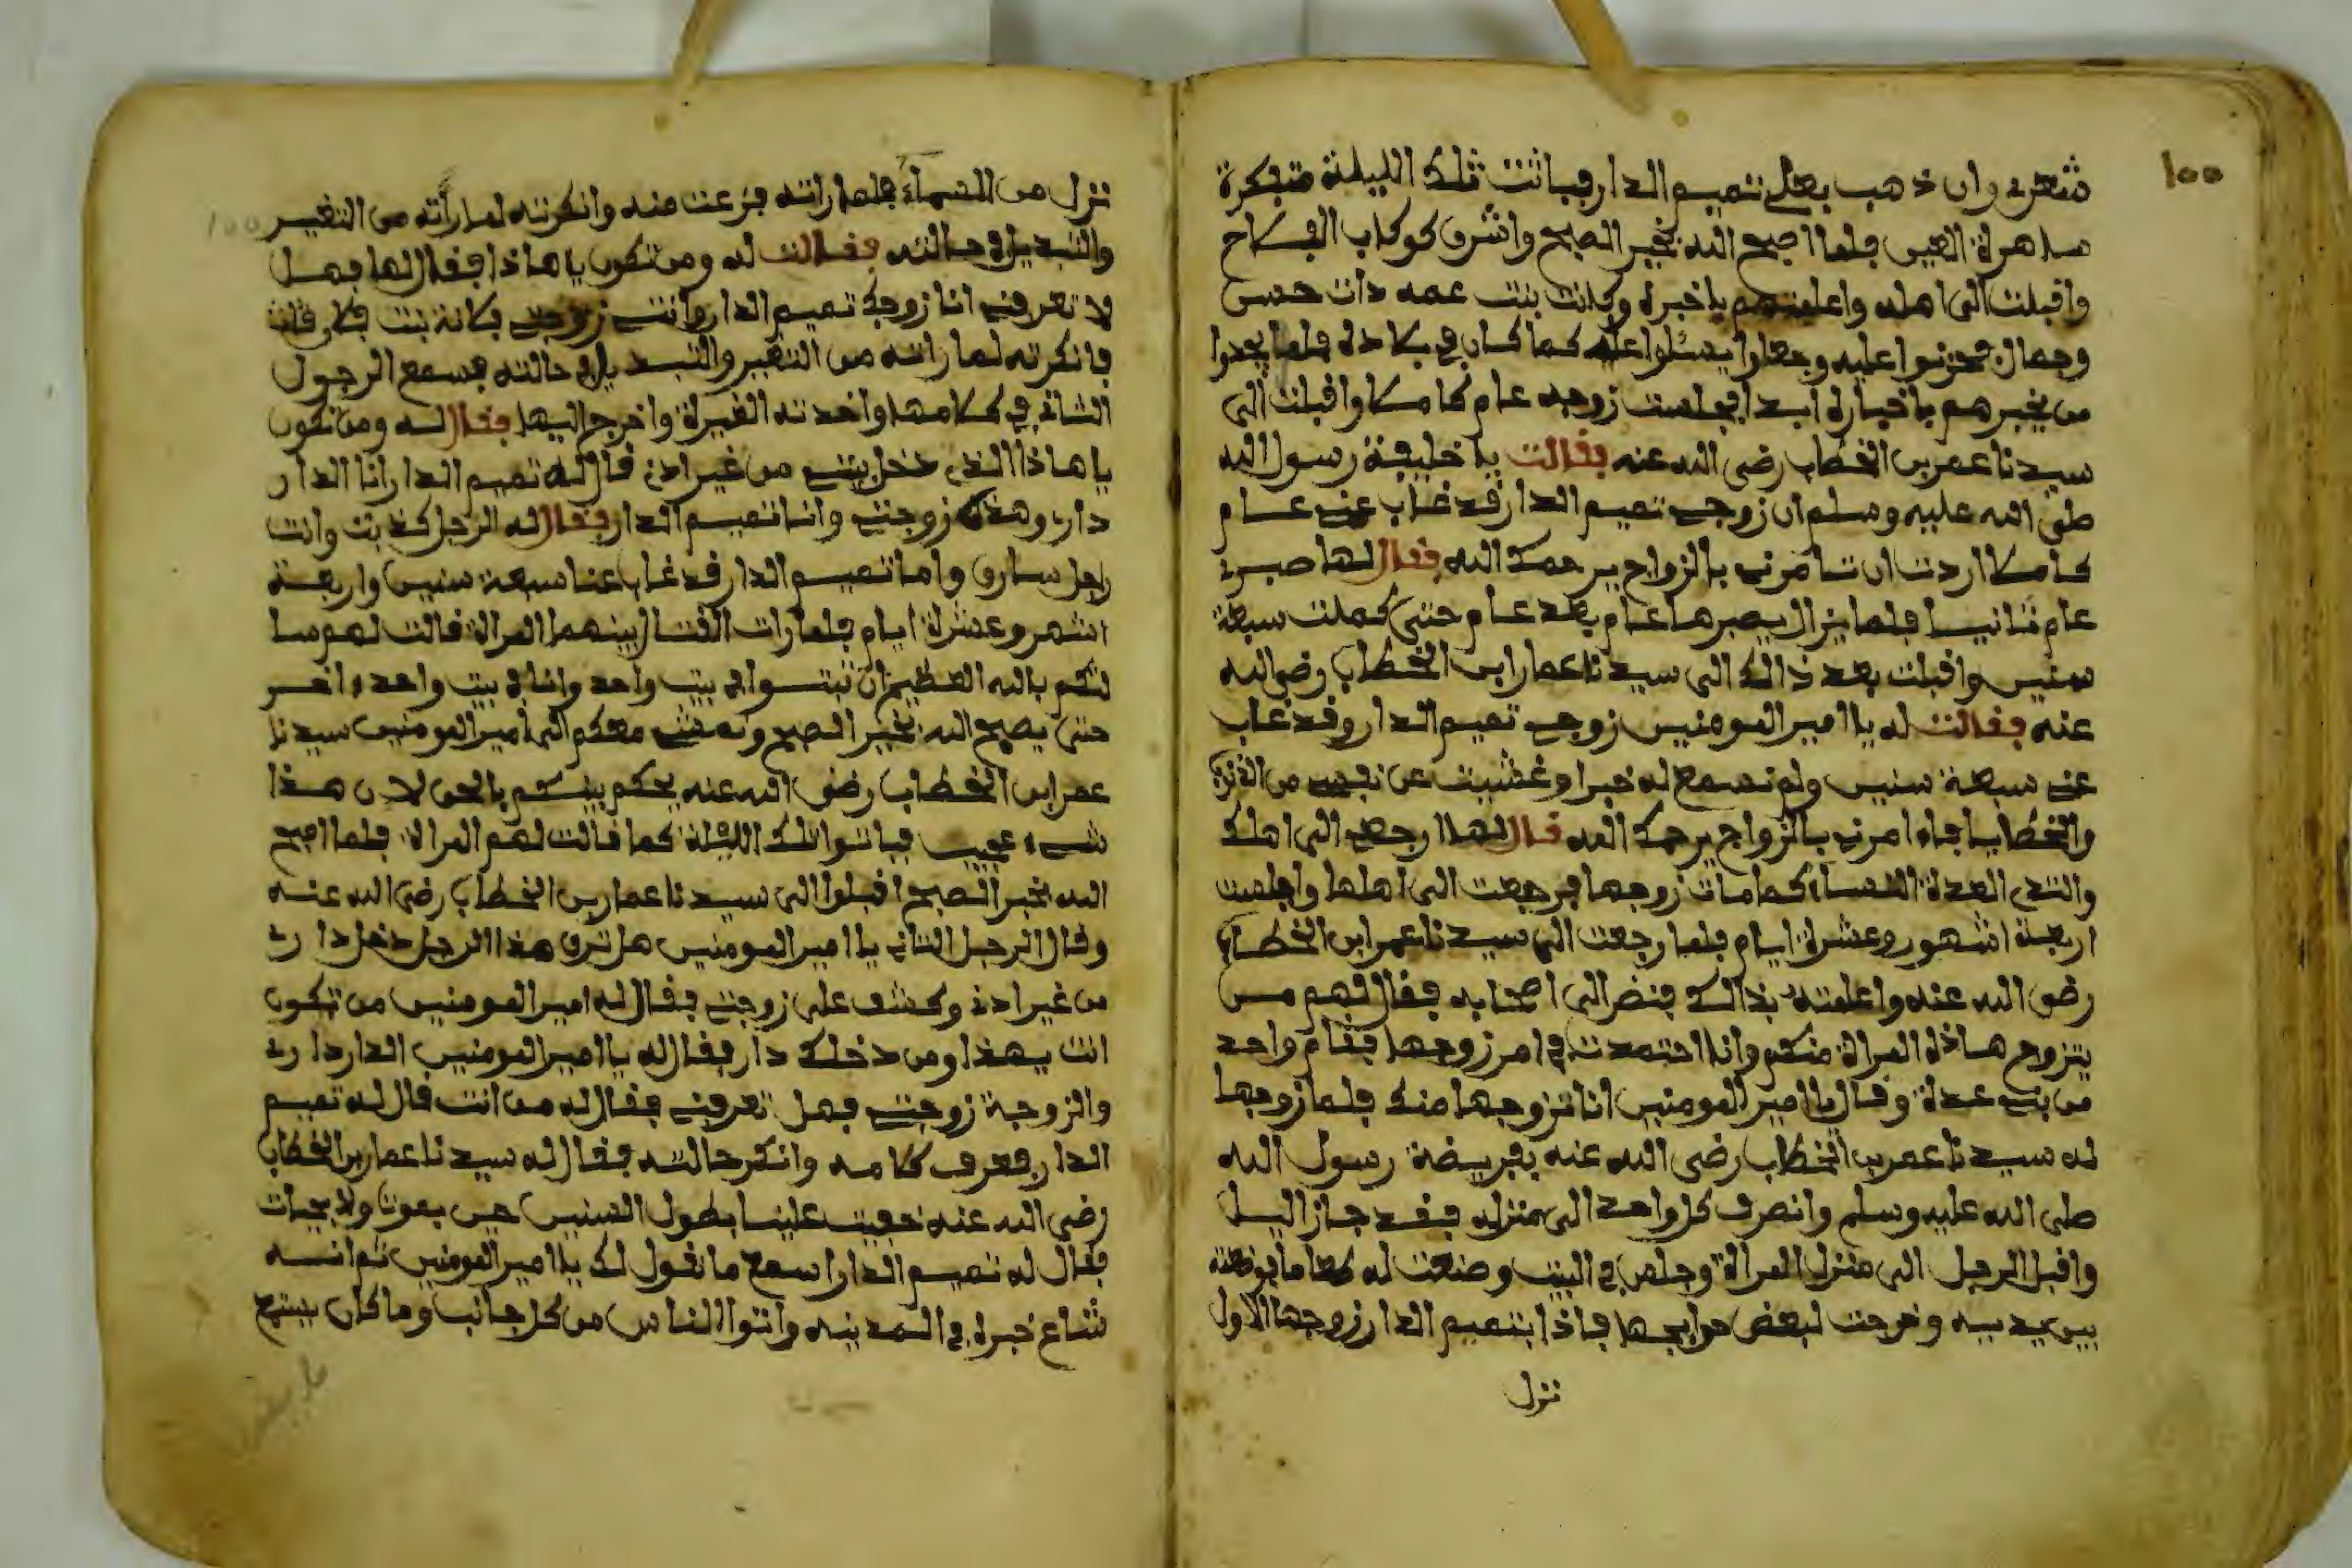 ١٠٠
شعرى وان ذهب بعلى تميم الدار فباتت تلك الليلة متفكرة
ساهرة العين فلما اصبح الله بخير الصبح واشرق كوكاب الفلاح
واقبلت الى اهله واعلمتهم باخبره وكانت بنت عمه ذات حسن
وجمال فحزنوا عليه وجعلوا يسئلوا عليه كما كان في بلاده فلما يجدوا
من يخبرهم باخباره ابدا فجلست زوجه عام كاملا واقبلت الى
سيدنا عمر بن الخطاب رضى الله عنه فقالت يا خليفة رسول الله
صلى الله عليه وسلم ان زوجي تميم الدار قد غاب عني عام
كاملا اردت ان تامرنى بالزواج يرحمك الله فقال لها صبرى
عام ثانيا فلما يزال يصبرها عام بعد عام حتى كملت سبعة
سنين واقبلت بعد ذالك الى سيدنا عمار ابن الخطاب رضى الله
عنه فقالت له يا امير المومنين زوجي تميم الدار وقد غاب
عني سبعة سنين ولم نسمع له خبرا وغشيت عن نفسي من
والخطايا فاء امرنى بالزواج يرحمك الله قال لها ارجعى الى اهلك
والتدى العدة النفساء كما مات زوجها فرجعت الى اهلها واجلست
اربعة اشهور وعشرة ايام فلما رجعت الى سيدنا عمر ابن الخطاب
رضى الله عنه واعلمته بذالك فنضر الى اصحابه فقال لهم من
يتزوج هاذه المراة منكم وانا اجتهدت في امر زوجها فقام واحد
من بني عدة وقال يا امير المومنين انا نتزوجها منك فلما زوجها
له سيدنا عمر بن الخطاب رضى الله عنه بفريضة رسول الله
صلى الله عليه وسلم وانصرف كل واحد الى منزله فقد جاز اليل
واقبل الرجل الى منزل المراة وجلس في البيت وصنعت له طعاما فوضعته
بين يديه وخرجت لبعض حوايجها فاذا بتميم الدار زوجها الاول
نزل
نزل من السماء فلما راته فزعت منه وانكرته لما رأته من التغيير
والتبديل في حالته فقالت له ومن تكون يا هاذا فقال لها فهل
لا تعرفني انا زوجك تميم الدار وانتي زوجتي فلانة بنت فلان قالت
فانكرته لما راته من التغيير والتبديل في حالته فسمع الرجول
الثاني كلامها واخدته الغيرة واخرج اليها فقال له ومن تكون
يا هاذا الذى دخل بيتي من غير اذنى قال له تميم الدار انا الدار
دارى وهذه زوجتي وانا تميم الدار فقال له الرجل كذبت وانت
راجل سارق واما تميم الدار قد غاب عنا سبعة سنين واربعة
اشهر وعشرة ايام فلما رات القتال بينهما المراة قالت لهم سا
لتكم بالله العظيم ان تبتوا في بيت واحد وانا في بيت واحد اخر
حتى يصبح الله بخير الصبح ونمشي معكم الى امير المومنين سيدنا
عمر ابن الخطاب رضى الله عنه يحكم بينكم بالحق لان هذا
شيء عجيب فباتوا تلك الليلة كما قالت لهم المراة فلما اصبح
الله بخير الصبح اقبلوا الى سيدنا عمار بن الخطاب رضى الله عنه
وقال الرجل الثاني يا امير المومنين هل ترى هذا الرجل دخل دارى
من غير اذنى وكشف على زوجتي فقال له امير المومنين من تكون
انت يهذا ومن دخلك دار فقال له يا امير المومنين الدار دارى
والزوجة زوجتي فهل تعرفني فقال له من انت قال له تميم
الدار فعرف كلامه وانكر حالته فقال له سيدنا عمار بن الخطاب
رضى الله عنه خفيت علينا بطول السنين حين بموت ولا بحيات
فقال له تميم الدار اسمع ما نقول لك يا امير المومنين ثم انه
شاع خبره في المدينه واتوا الناس من كل جانب وما كان بينهم